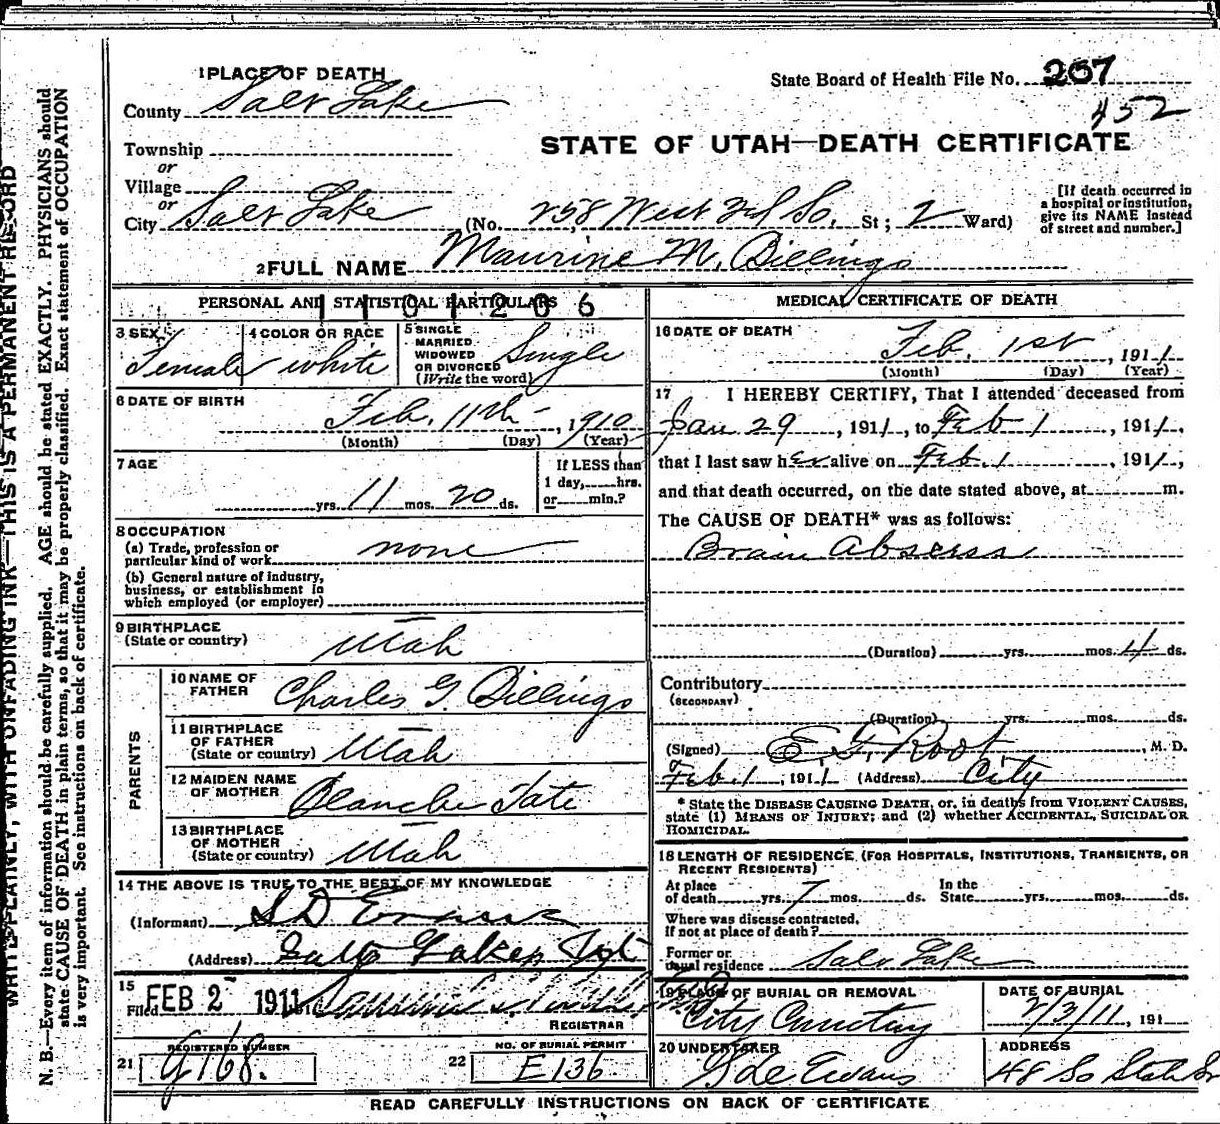 1 PLACE OF DEATH
State Board of Health File No. 267
County Salt Lake
452
STATE OF UTAH—DEATH CERTIFICATE
Township
or
Village
or
City Salt Lake (No. 258 West 3rd So. St; 2 Ward)
[If death occurred in
a hospital or institution,
give its NAME instead
of street and number.]
2 FULL NAME Maurine M. Billings
PERSONAL AND STATISTICAL PARTICULARS
1101206
3 SEX Female
4 COLOR OR RACE white
5 SINGLE
MARRIED
WIDOWED
OR DIVORCED
(Write the word) Single
6 DATE OF BIRTH
Feb. 11th, 1910
(Month) (Day) (Year)
7 AGE
yrs. 11 mos. 20 ds.
If LESS than
1 day, hrs.
or min.?
8 OCCUPATION
(a) Trade, profession or
particular kind of work none
(b) General nature of industry,
business, or establishment in
which employed (or employer)
9 BIRTHPLACE
(State or country) Utah
PARENTS
10 NAME OF
FATHER Charles G Billings
11 BIRTHPLACE
OF FATHER
(State or country) Utah
12 MAIDEN NAME
OF MOTHER Blanche Tate
13 BIRTHPLACE
OF MOTHER
(State or country) Utah
14 THE ABOVE IS TRUE TO THE BEST OF MY KNOWLEDGE
(Informant) S D Evans
(Address) Salt Lake
15
Filed FEB 2 1911
REGISTRAR
21 REGISTERED NUMBER
G168.
22 NO. OF BURIAL PERMIT
E136.
MEDICAL CERTIFICATE OF DEATH
16 DATE OF DEATH
Feb. 1st, 1911
(Month) (Day) (Year)
17 I HEREBY CERTIFY, That I attended deceased from
Jan 29, 1911, to Feb 1, 1911,
that I last saw her alive on Feb. 1, 1911,
and that death occurred, on the date stated above, at m.
The CAUSE OF DEATH* was as follows:
Brain Abscess
(Duration) yrs. mos. 4 ds.
Contributory
(SECONDARY)
(Duration) yrs. mos. ds.
(Signed) E. F. Root, M. D.
Feb. 1, 1911 (Address) City
* State the DISEASE CAUSING DEATH, or, in deaths from VIOLENT CAUSES,
state (1) MEANS OF INJURY; and (2) whether ACCIDENTAL, SUICIDAL OR
HOMICIDAL.
18 LENGTH OF RESIDENCE (FOR HOSPITALS, INSTITUTIONS, TRANSIENTS, OR
RECENT RESIDENTS)
At place
of death yrs. 7 mos. ds.
In the
State yrs. mos. ds.
Where was disease contracted,
if not at place of death?
Former or
usual residence Salt Lake
19 PLACE OF BURIAL OR REMOVAL
City Cemetery
DATE OF BURIAL
2/3/11, 191
20 UNDERTAKER
Evans
ADDRESS
48 So State St
READ CAREFULLY INSTRUCTIONS ON BACK OF CERTIFICATE
WRITE PLAINLY, WITH UNFADING INK—THIS IS A PERMANENT RECORD
N. B.—Every item of information should be carefully supplied. AGE should be stated EXACTLY. PHYSICIANS should
state CAUSE OF DEATH in plain terms, so that it may be properly classified. Exact statement of OCCUPATION
is very important. See instructions on back of certificate.